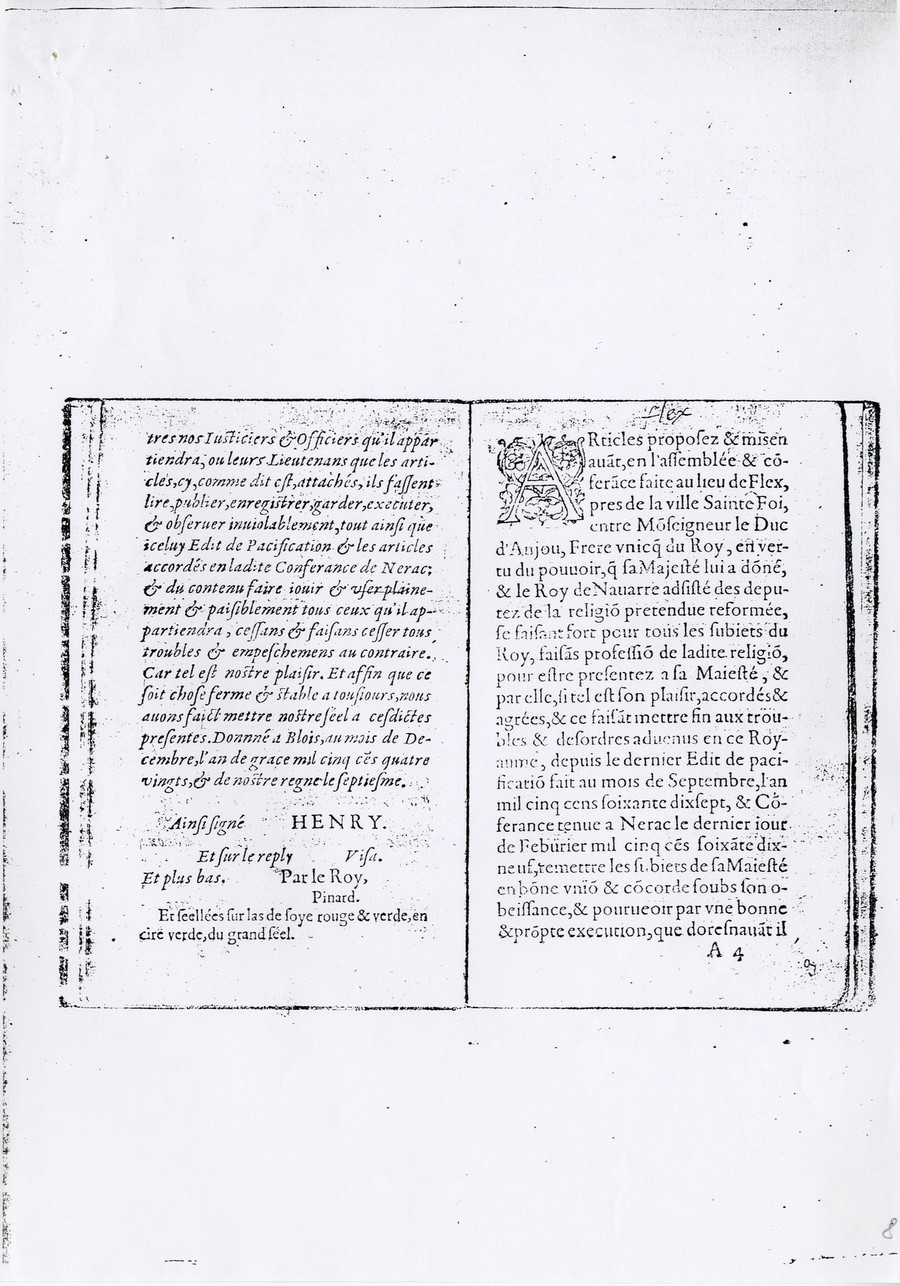 tres nos Iusticiers & Officiers qu'il appar
tiendra, ou leurs Lieutenans que les arti-
cles, cy, comme dit est, attachés, ils fassent
lire, publier, enregistrer, garder, executer,
& obseruer inuiolablement, tout ainsi que
iceluy Edit de Pacification & les articles
accordés en ladite Conferance de Nerac;
& du contenu faire iouir & vser plaine-
ment & paisiblement tous ceux qu'il ap-
partiendra, cessans & faisans cesser tous
troubles & empeschemens au contraire.
Car tel est nostre plaisir. Et affin que ce
soit chose ferme & stable a tousiours, nous
auons faict mettre nostre seel a cesdictes
presentes. Donnné a Blois, au mois de De-
cembre, l'an de grace mil cinq cēs quatre
vingts, & de nostre regne le septiesme.
Ainsi signé HENRY.
Et sur le reply Visa.
Et plus bas. Par le Roy,
Pinard.
Et seellées sur las de soye rouge & verde, en
cire verde, du grand séel.
Flex
ARticles proposez & mis en
auāt, en l'assemblée & cō-
ferāce faite au lieu de Flex,
pres de la ville Sainte Foi,
entre Mōseigneur le Duc
d'Anjou, Frere vnicq̃ du Roy, en ver-
tu du pouuoir, q̃ sa Majesté lui a dōné,
& le Roy de Nauarre adsisté des depu-
tez de la religiō pretendue reformée,
se faisant fort pour tous les subiets du
Roy, faisās professiō de ladite religiō,
pour estre presentez a sa Maiesté, &
par elle, si tel est son plaisir, accordés &
agrées, & ce faisāt mettre fin aux trou-
bles & desordres aduenus en ce Roy-
aume, depuis le dernier Edit de paci-
ficatiō fait au mois de Septembre, l'an
mil cinq cens soixante dixsept, & Cō-
ferance tenue a Nerac le dernier iour
de Feburier mil cinq cēs soixāte dix-
neuf, remettre les subiets de sa Maiesté
en bōne vniō & cōcorde soubs son o-
beissance, & pourueoir par vne bonne
& prōpte execution, que doresnauāt il
A 4
8